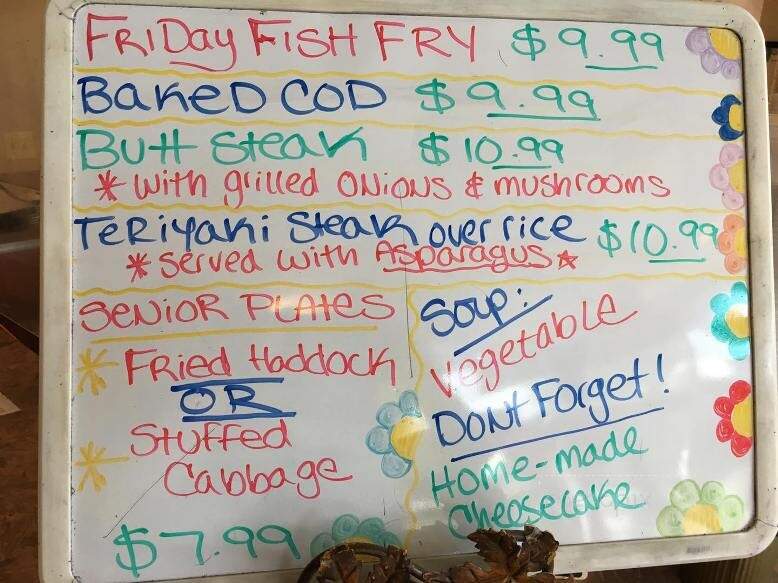 FRiDay FiSH FRY $9.99
BaKeD COD $9.99
Butt Steak $10.99
* with grilled ONioNS & mushrooms
TeRiyaki Steak over rice $10.99
* served with Asparagus ☆
SeNiOR PLAteS
* FRied Haddock
OR
* Stuffed
Cabbage
$7.99
Soup:
VegetabLe
DONt Forget!
HOMe-made
Cheesecake